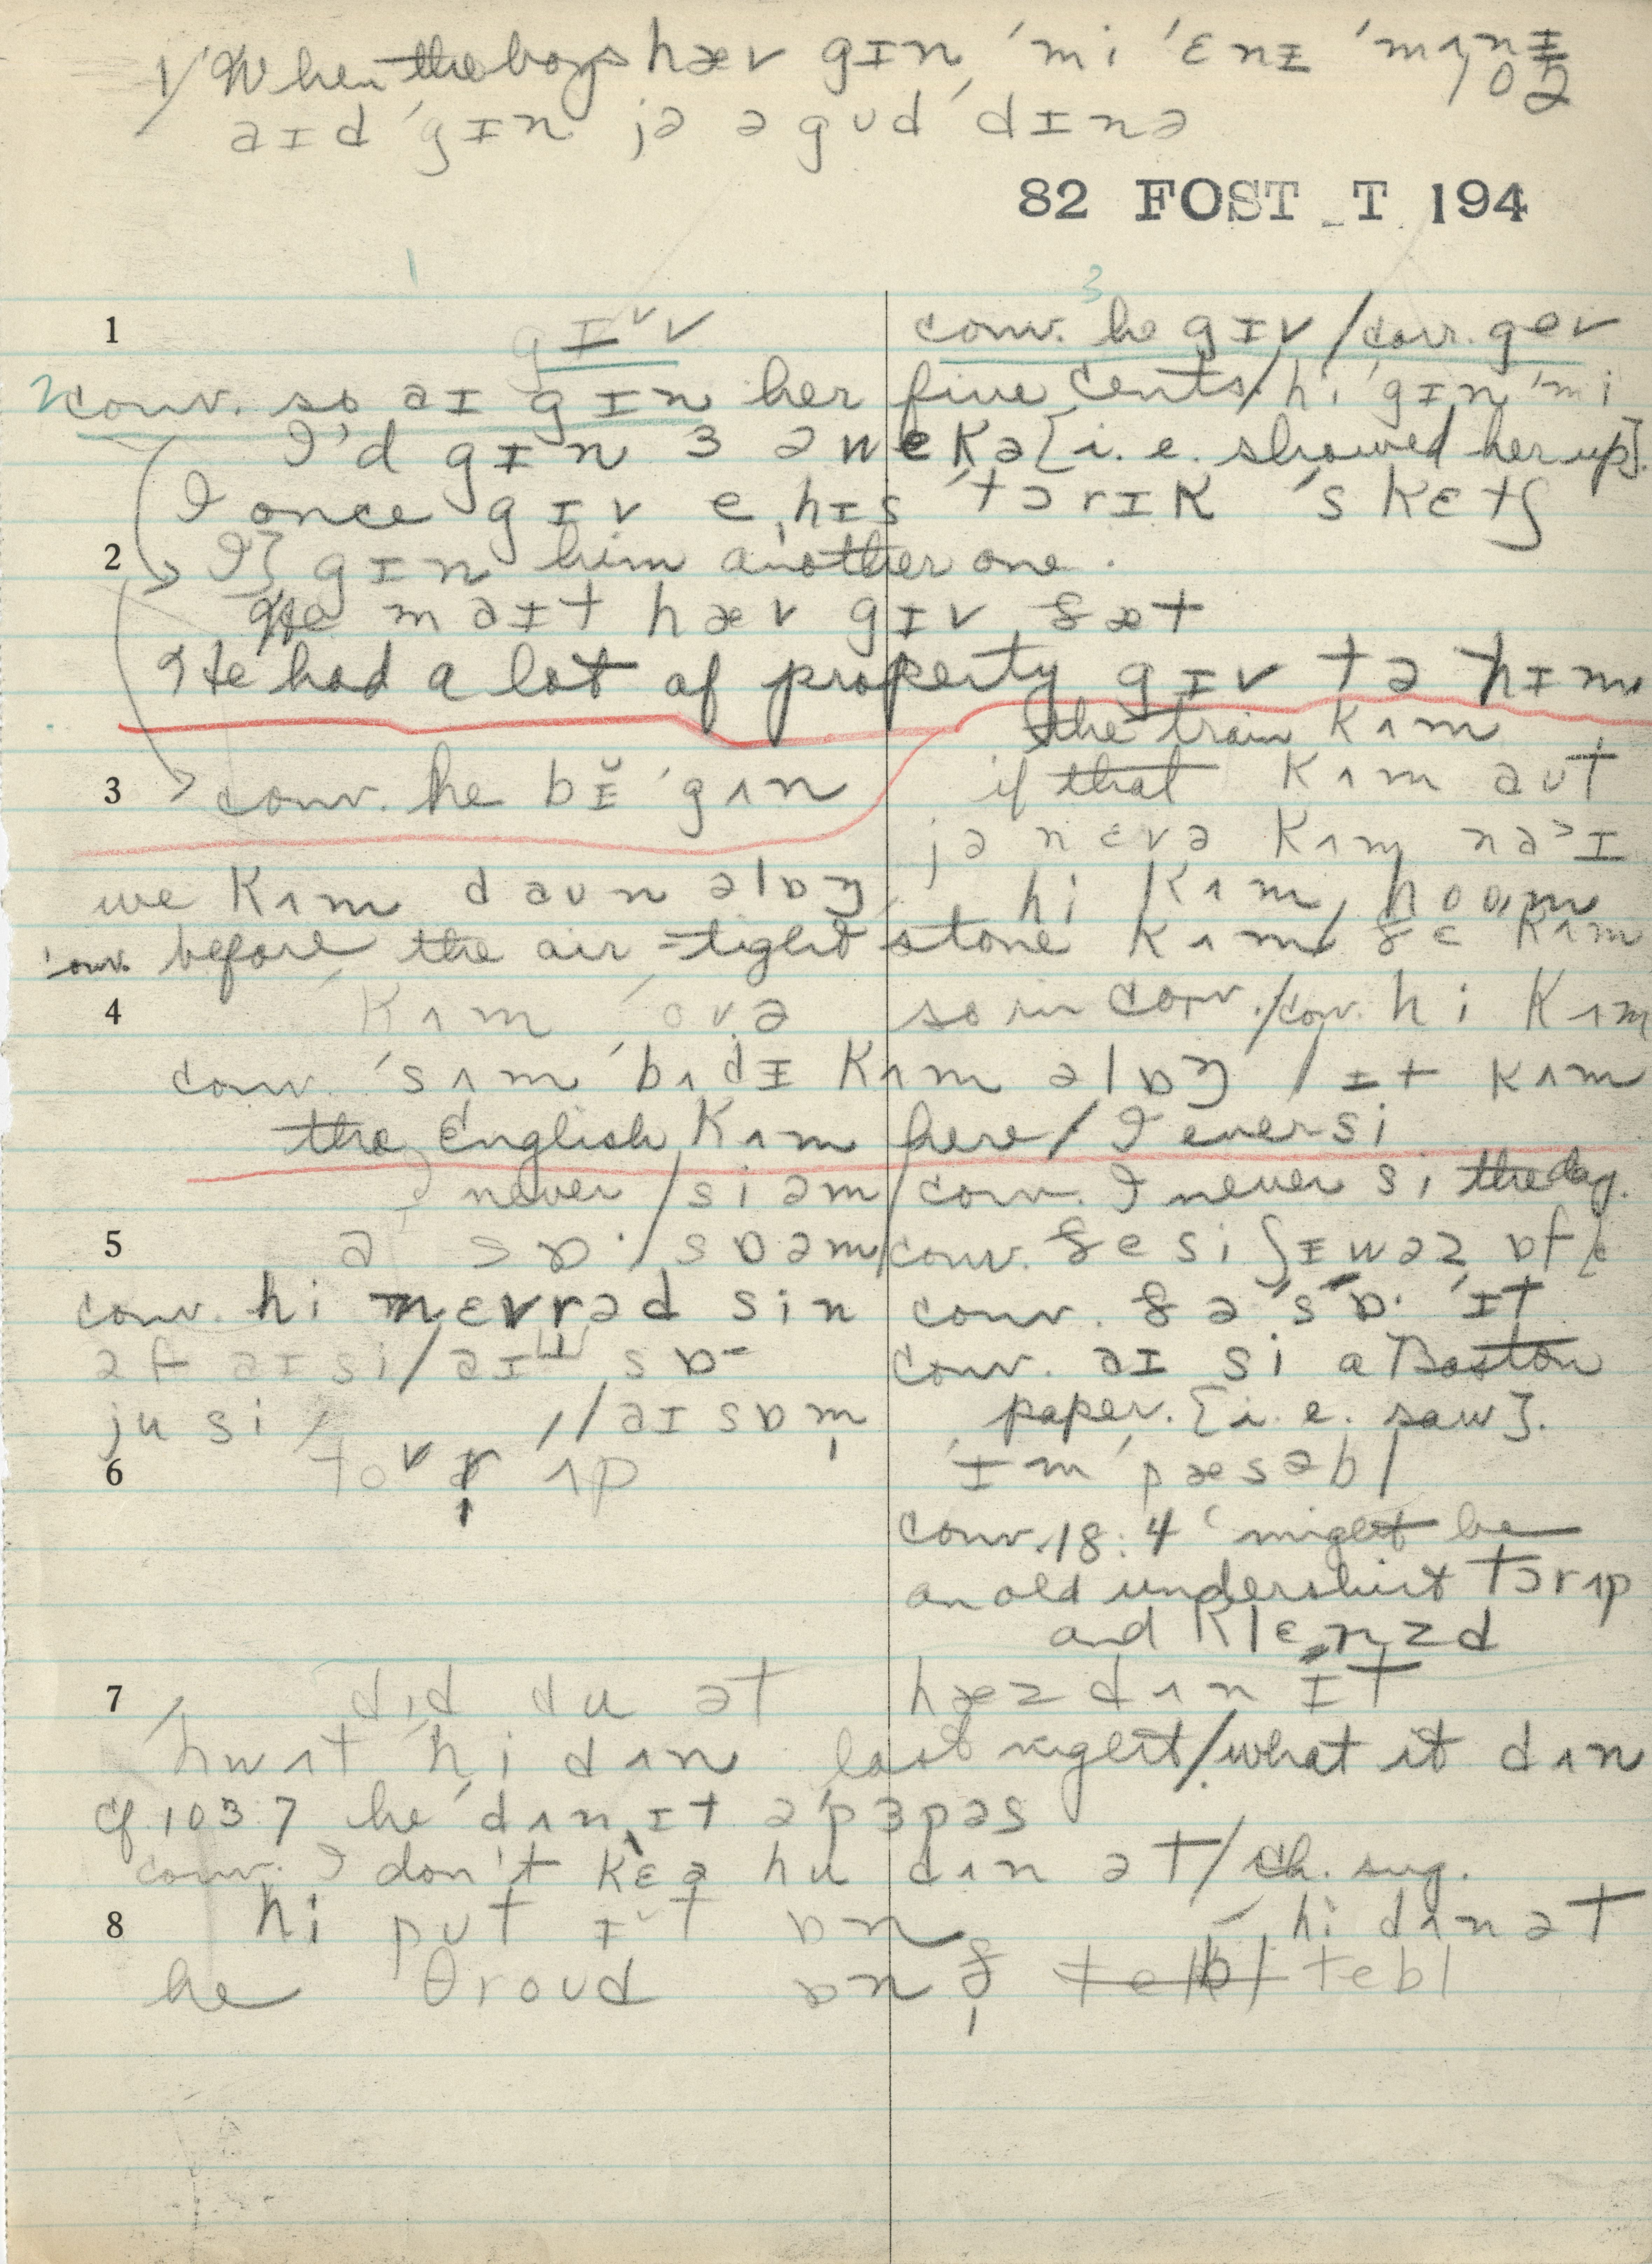 1/ When the boys hæv gɪn 'mi 'ɛnɪ 'mʌnɪ
102
aɪd 'gɪn jə ə gʊd 'dɪnə
82 FOST _T 194
1 3
1 gɪᵛv conv. he gɪv / corr. gev
2 conv. so aɪ gɪn her five cents / hi 'gɪn 'mi
I'd gɪn ɜ ə wekə [i.e. showed her up].
I once gɪv e hɪs'tɔrɪk 'skɛtʃ
2 I gɪn him another one.
He maɪt hæv gɪv ðæt
He had a lot of property gɪv tə hɪm
the train kʌm
3 conv. he bɪ̆'gʌn if that kʌm aʊt
jə nɛvə kʌm
we kʌm daʊn əlɒŋ hi kʌm hoʊm
conv. before the air-tight stone kʌm / ðe kʌm
4 kʌm ovə so in conv. / conv. hi kʌm
conv. 'sʌm'bʌdɪ kʌm əlɒŋ / ɪt kʌm
the English kʌm here / I ever si
I never / si əm / conv. I never si the day.
5 a sɒ· / sɒ əm / conv. ðe si ʃɪ wəz ɒf
conv. hi nɛvrəd sin conv. ðə 'sɒ· 'ɪt
əf aɪ si / aɪ sɒ- conv. aɪ si a Boston
ju si // aɪ sɒ m̩ paper. [i.e. saw].
6 tov r̩ ʌp 'ɪm'pæsəbl
conv. 18:4 might be
an old undershirt tɔr ʌp
and klɛnzd
7 dɪd du ət hæz dʌn ɪt
hwʌt hi dʌn last night / what it dʌn
cf 103 7 he dʌn ɪt ə'pɜpəs
conv. I don't kɛə hu dʌn ət / ch. sug.
8 hi pʊt ɪt ɒn hi dʌn ət
he θroʊd ɒn ð̩ tebl